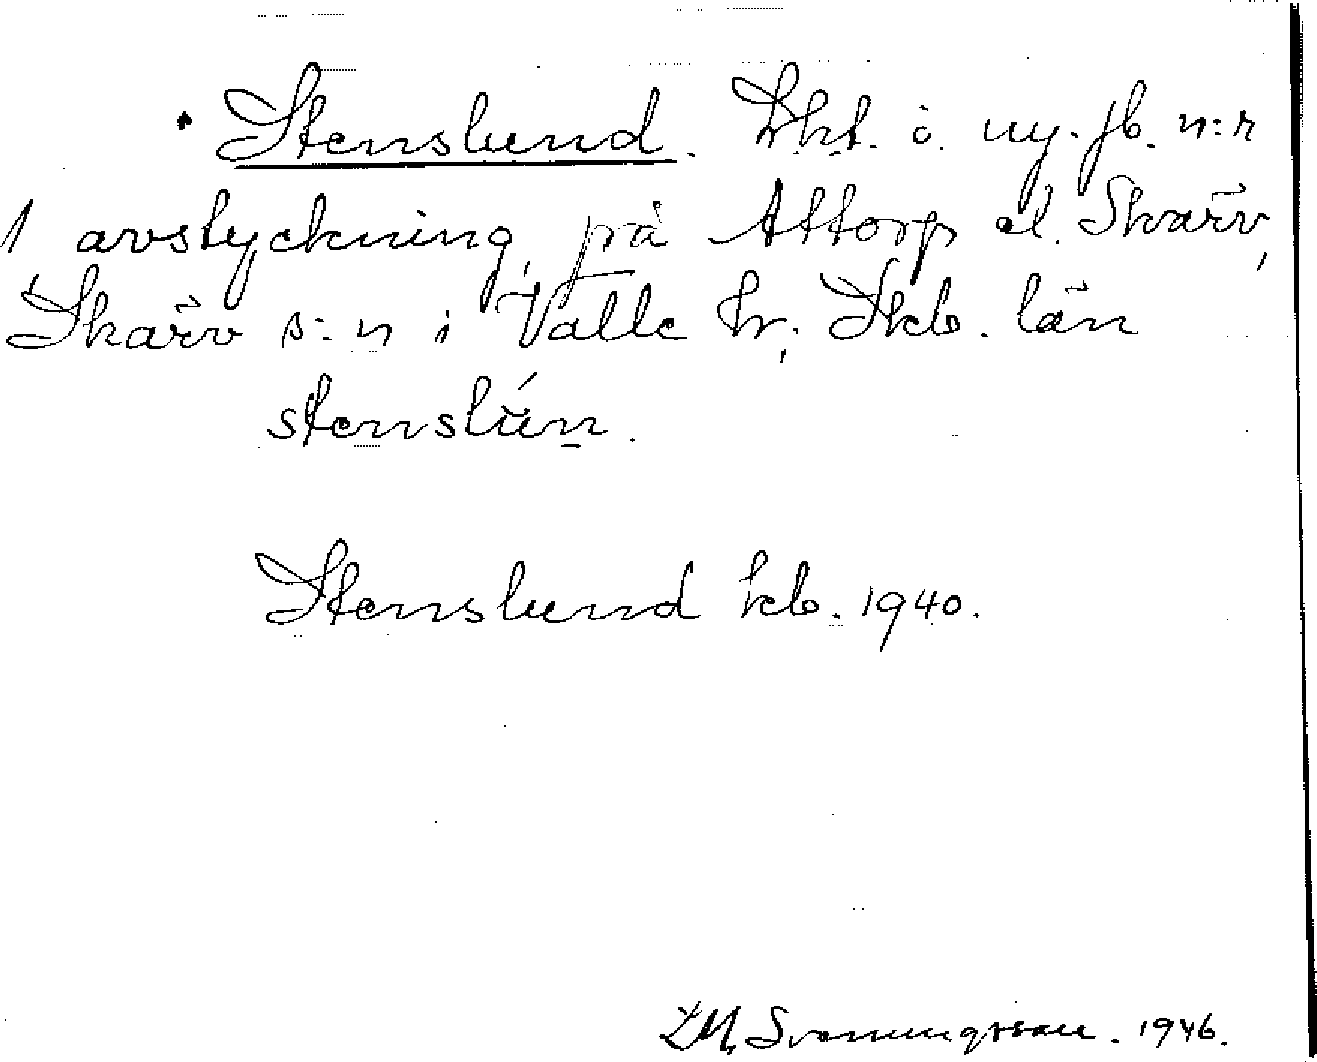 Stenslund. Lht. i. ny. jb. n:r
1 avstyckning på Attorp el. Skärv,
Skärv s:n i Valle hr. Skb. län
stenslún.
Stenslund kb. 1940.
Svenningsson. 1946.